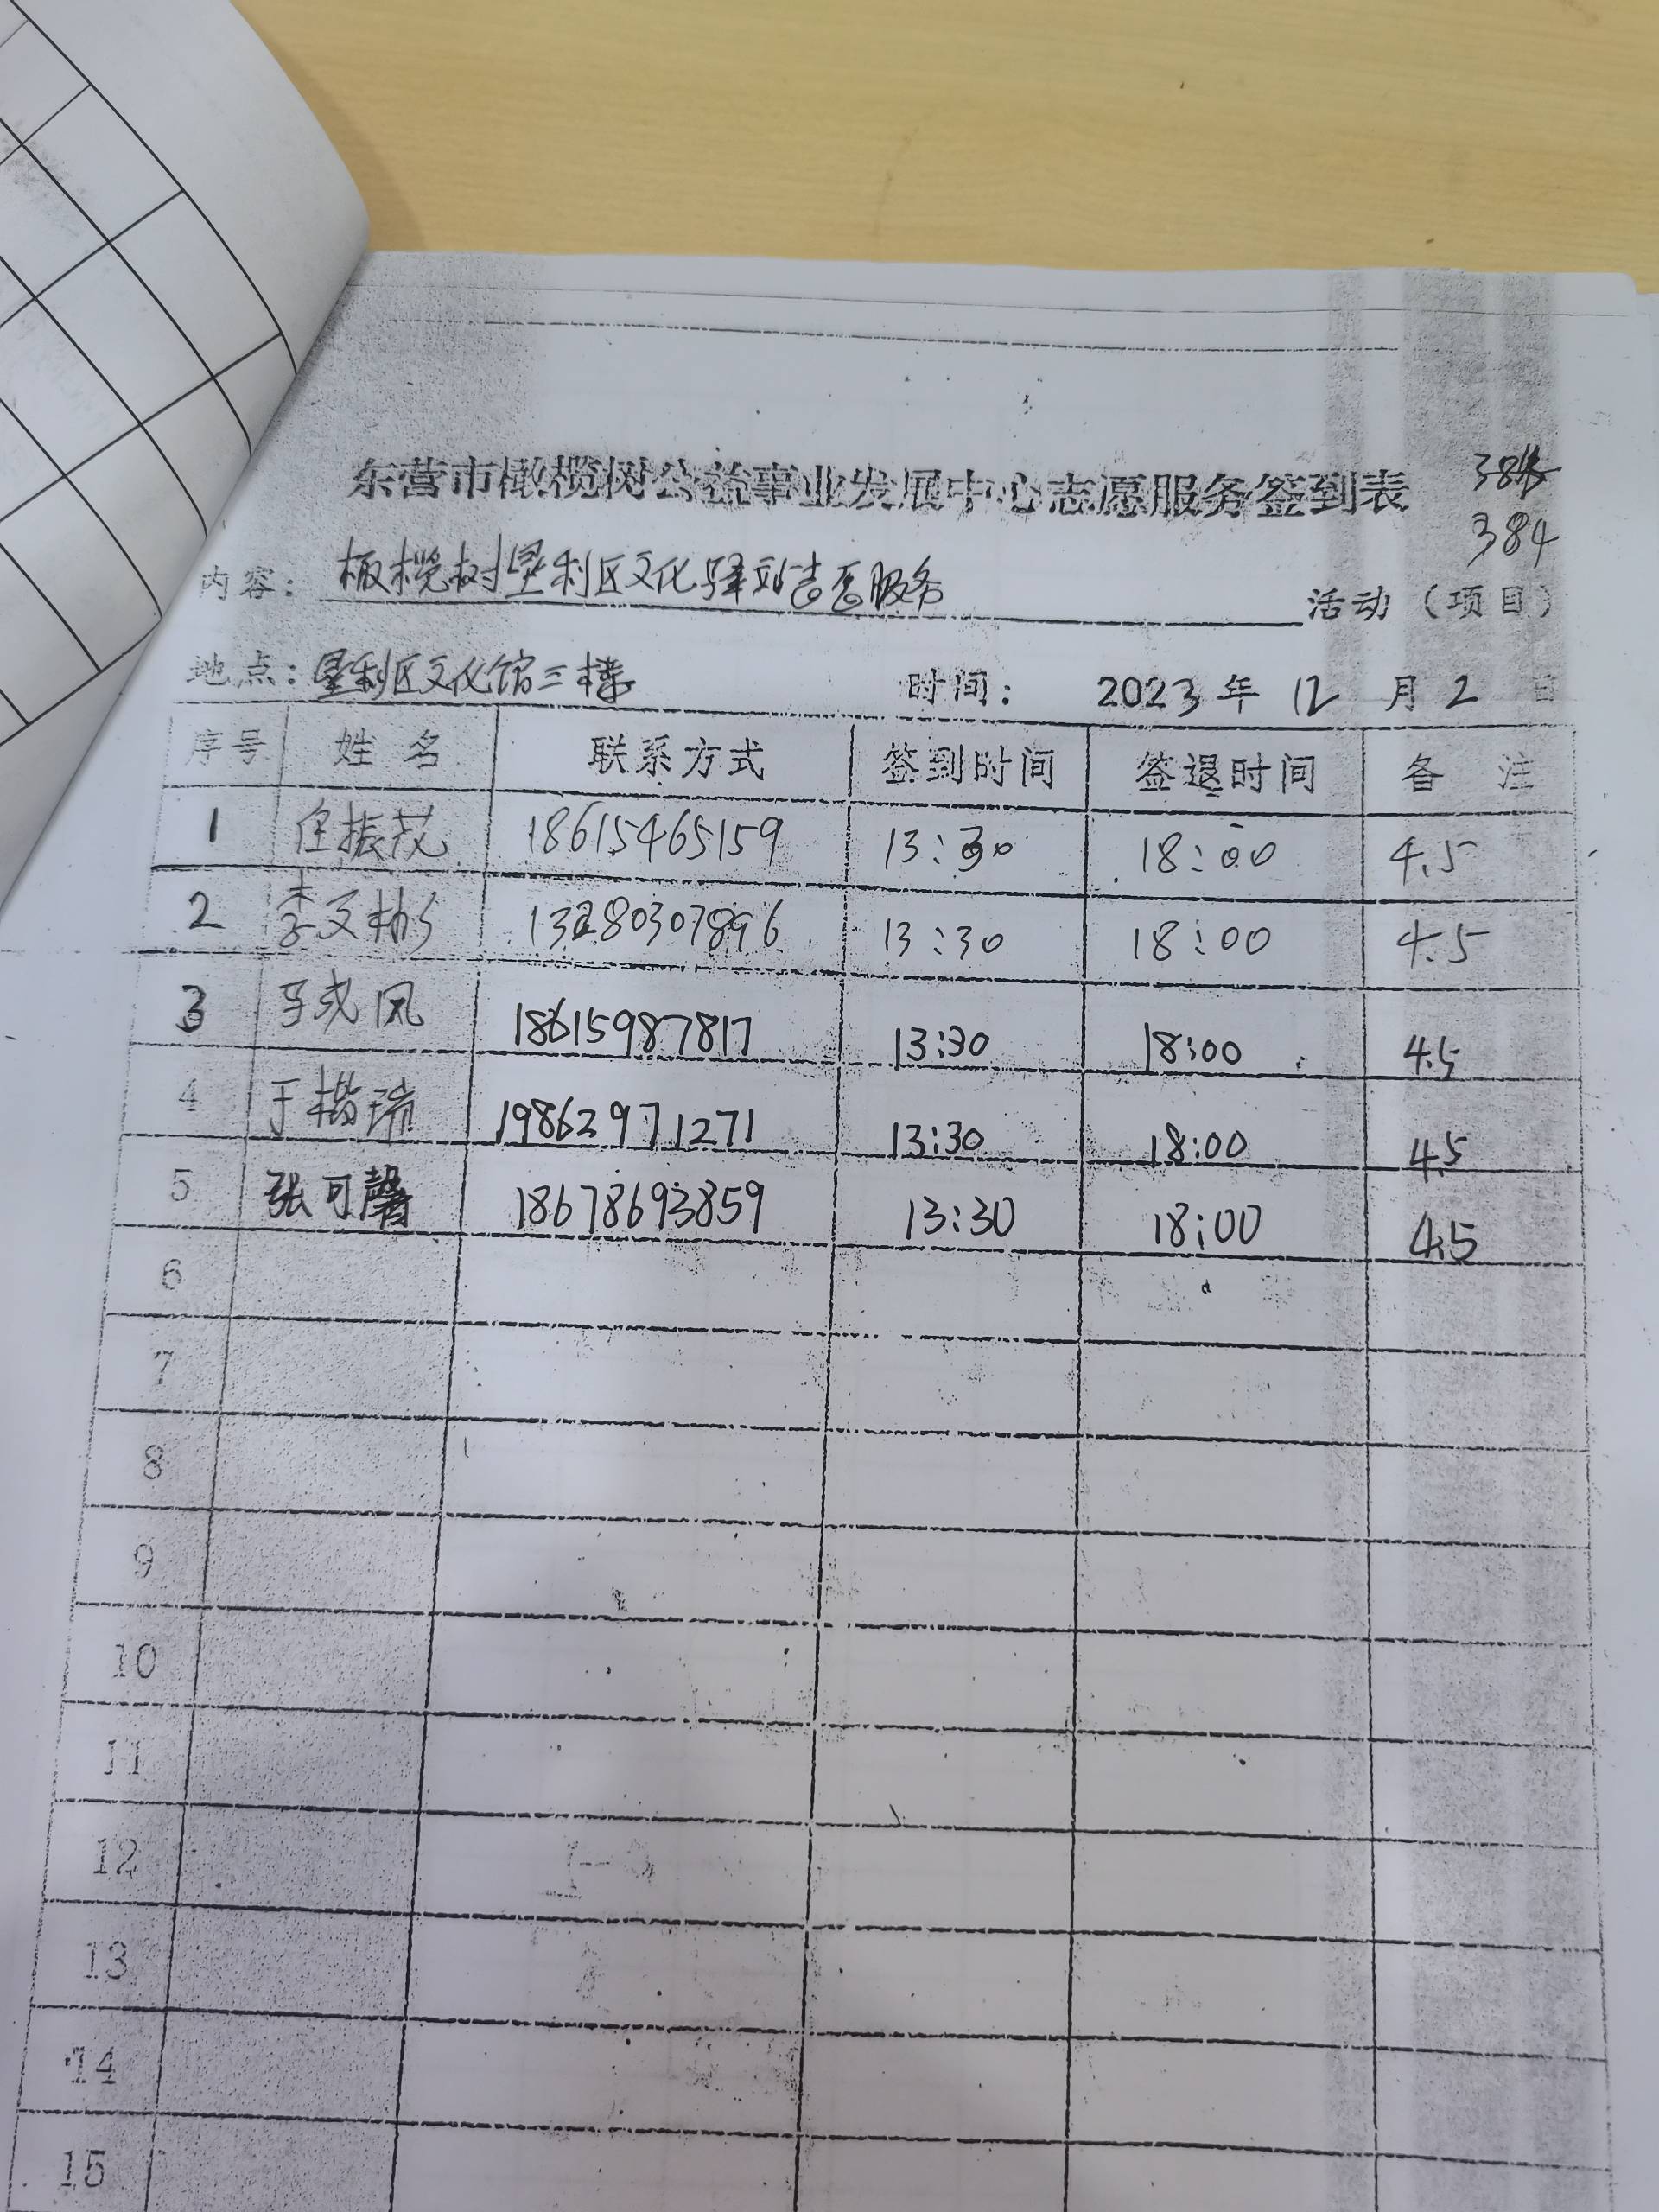 东营市橄榄树公益事业发展中心志愿服务签到表
384
内容: 橄榄树垦利区文化驿站志愿服务 活动（项目）
地点: 垦利区文化馆三楼 时间: 2023 年 12 月 2 日
序号 姓名 联系方式 签到时间 签退时间 备注
1 任振茂 18615465159 13:30 18:00 4.5
2 李文彬 13280307896 13:30 18:00 4.5
3 马成风 18615987817 13:30 18:00 4.5
4 于楷瑞 19862971271 13:30 18:00 4.5
5 张可馨 18678693859 13:30 18:00 4.5
6
7
8
9
10
11
12
13
14
15